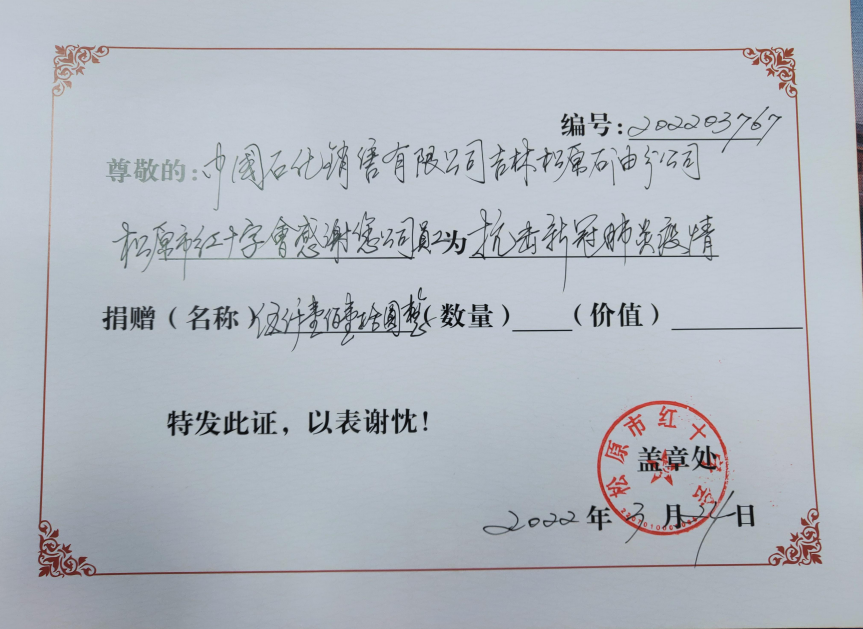 编号:202203767
尊敬的:中国石化销售有限公司吉林松原石油分公司
松原市红十字會感谢您公司員工为 抗击新冠肺炎疫情
捐赠(名称)伍仟壹佰壹拾圆整(数量)____(价值)________
特发此证,以表谢忱!
松原市红十字会
盖章处
2022年3月24日